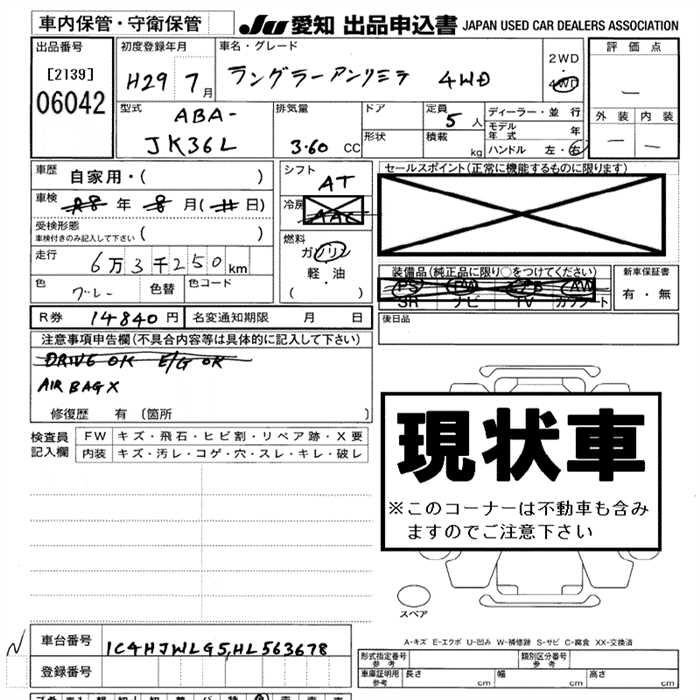 車内保管・守衛保管
JU 愛知 出品申込書 JAPAN USED CAR DEALERS ASSOCIATION
出品番号
[2139]
06042
初度登録年月
H29 7月
車名・グレード
ラングラーアンリミテ 4WD
2WD
・
4WD
評価点
—
外装 内装
— —
型式
ABA-
JK36L
排気量
3.60 CC
ドア
形状
定員 5人
積載 kg
ディーラー・並行
モデル年式 年
ハンドル 左・右
車歴
自家用・( )
車検
R8年8月(#日)
受検形態
車検付きのみ記入して下さい ( )
走行
6万3千250km
色
グレー
色替
色コード
シフト
AT
冷房
AAC
燃料
ガソリン
軽・油
( )
セールスポイント(正常に機能するものに限ります)
装備品(純正品に限り○をつけてください)
PS PW エアB AW
SR ナビ TV カワシート
新車保証書
有・無
R券 14840円 名変通知期限 月 日
後日品
注意事項申告欄(不具合内容等は具体的に記入して下さい)
DRIVE OK E/G OK
AIR BAG X
修復歴 有 〔箇所 〕
検査員
記入欄
FW キズ・飛石・ヒビ割・リペア跡・X要
内装 キズ・汚レ・コゲ・穴・スレ・キレ・破レ
現状車
※このコーナーは不動車も含み
ますのでご注意下さい
スペア
A-キズ E-エクボ U-凹み W-補修跡 S-サビ C-腐食 XX-交換済
車台番号 1C4HJWLG5HL563678
登録番号
形式指定番号
参考
類別区分番号
参考
車庫証明用
参考
長さ cm 幅 cm 高さ cm